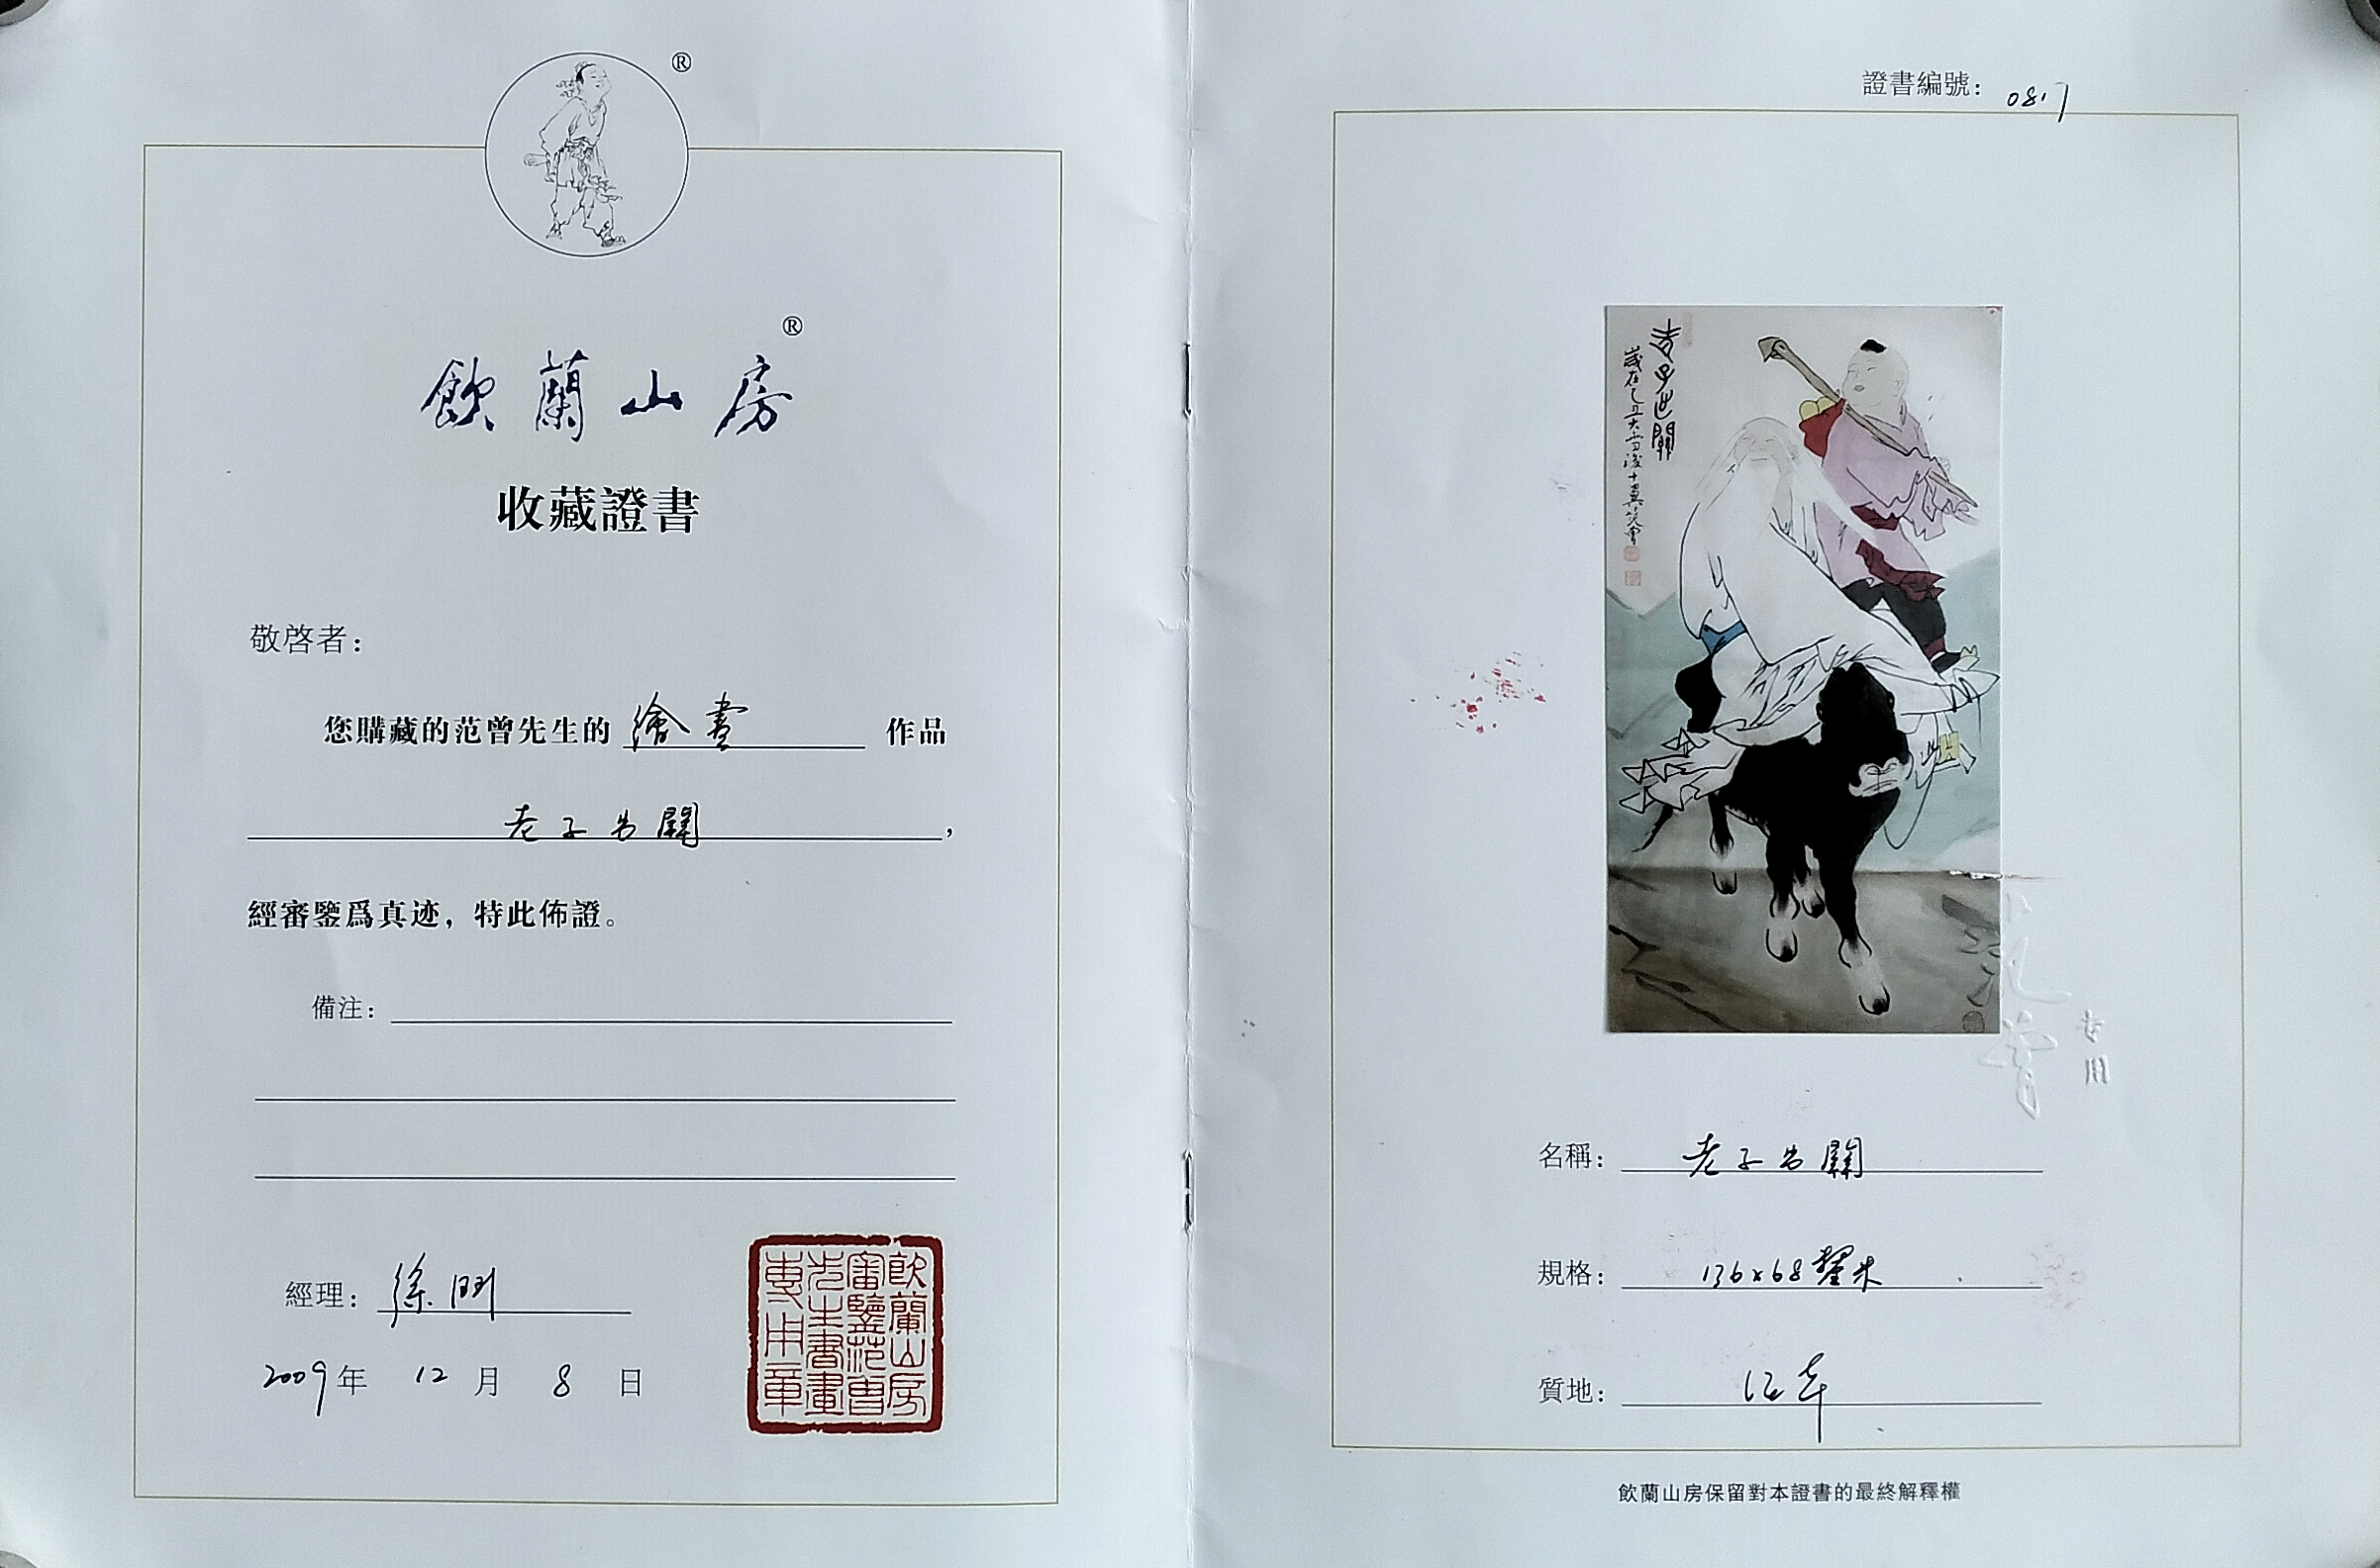 ®
飲蘭山房®
收藏證書
敬啓者：
您購藏的范曾先生的 繪畫 作品
老子出關，
經審鑒爲真迹，特此佈證。
備注：
經理：徐
2009年 12 月 8 日
飲蘭山房
審鑒范曾
先生書畫
專用章
證書編號：0817
老子出關
歲在己丑大雪後十翼范曾
范曾
专用
名稱：老子出關
規格：136x68釐米
質地：
飲蘭山房保留對本證書的最終解釋權